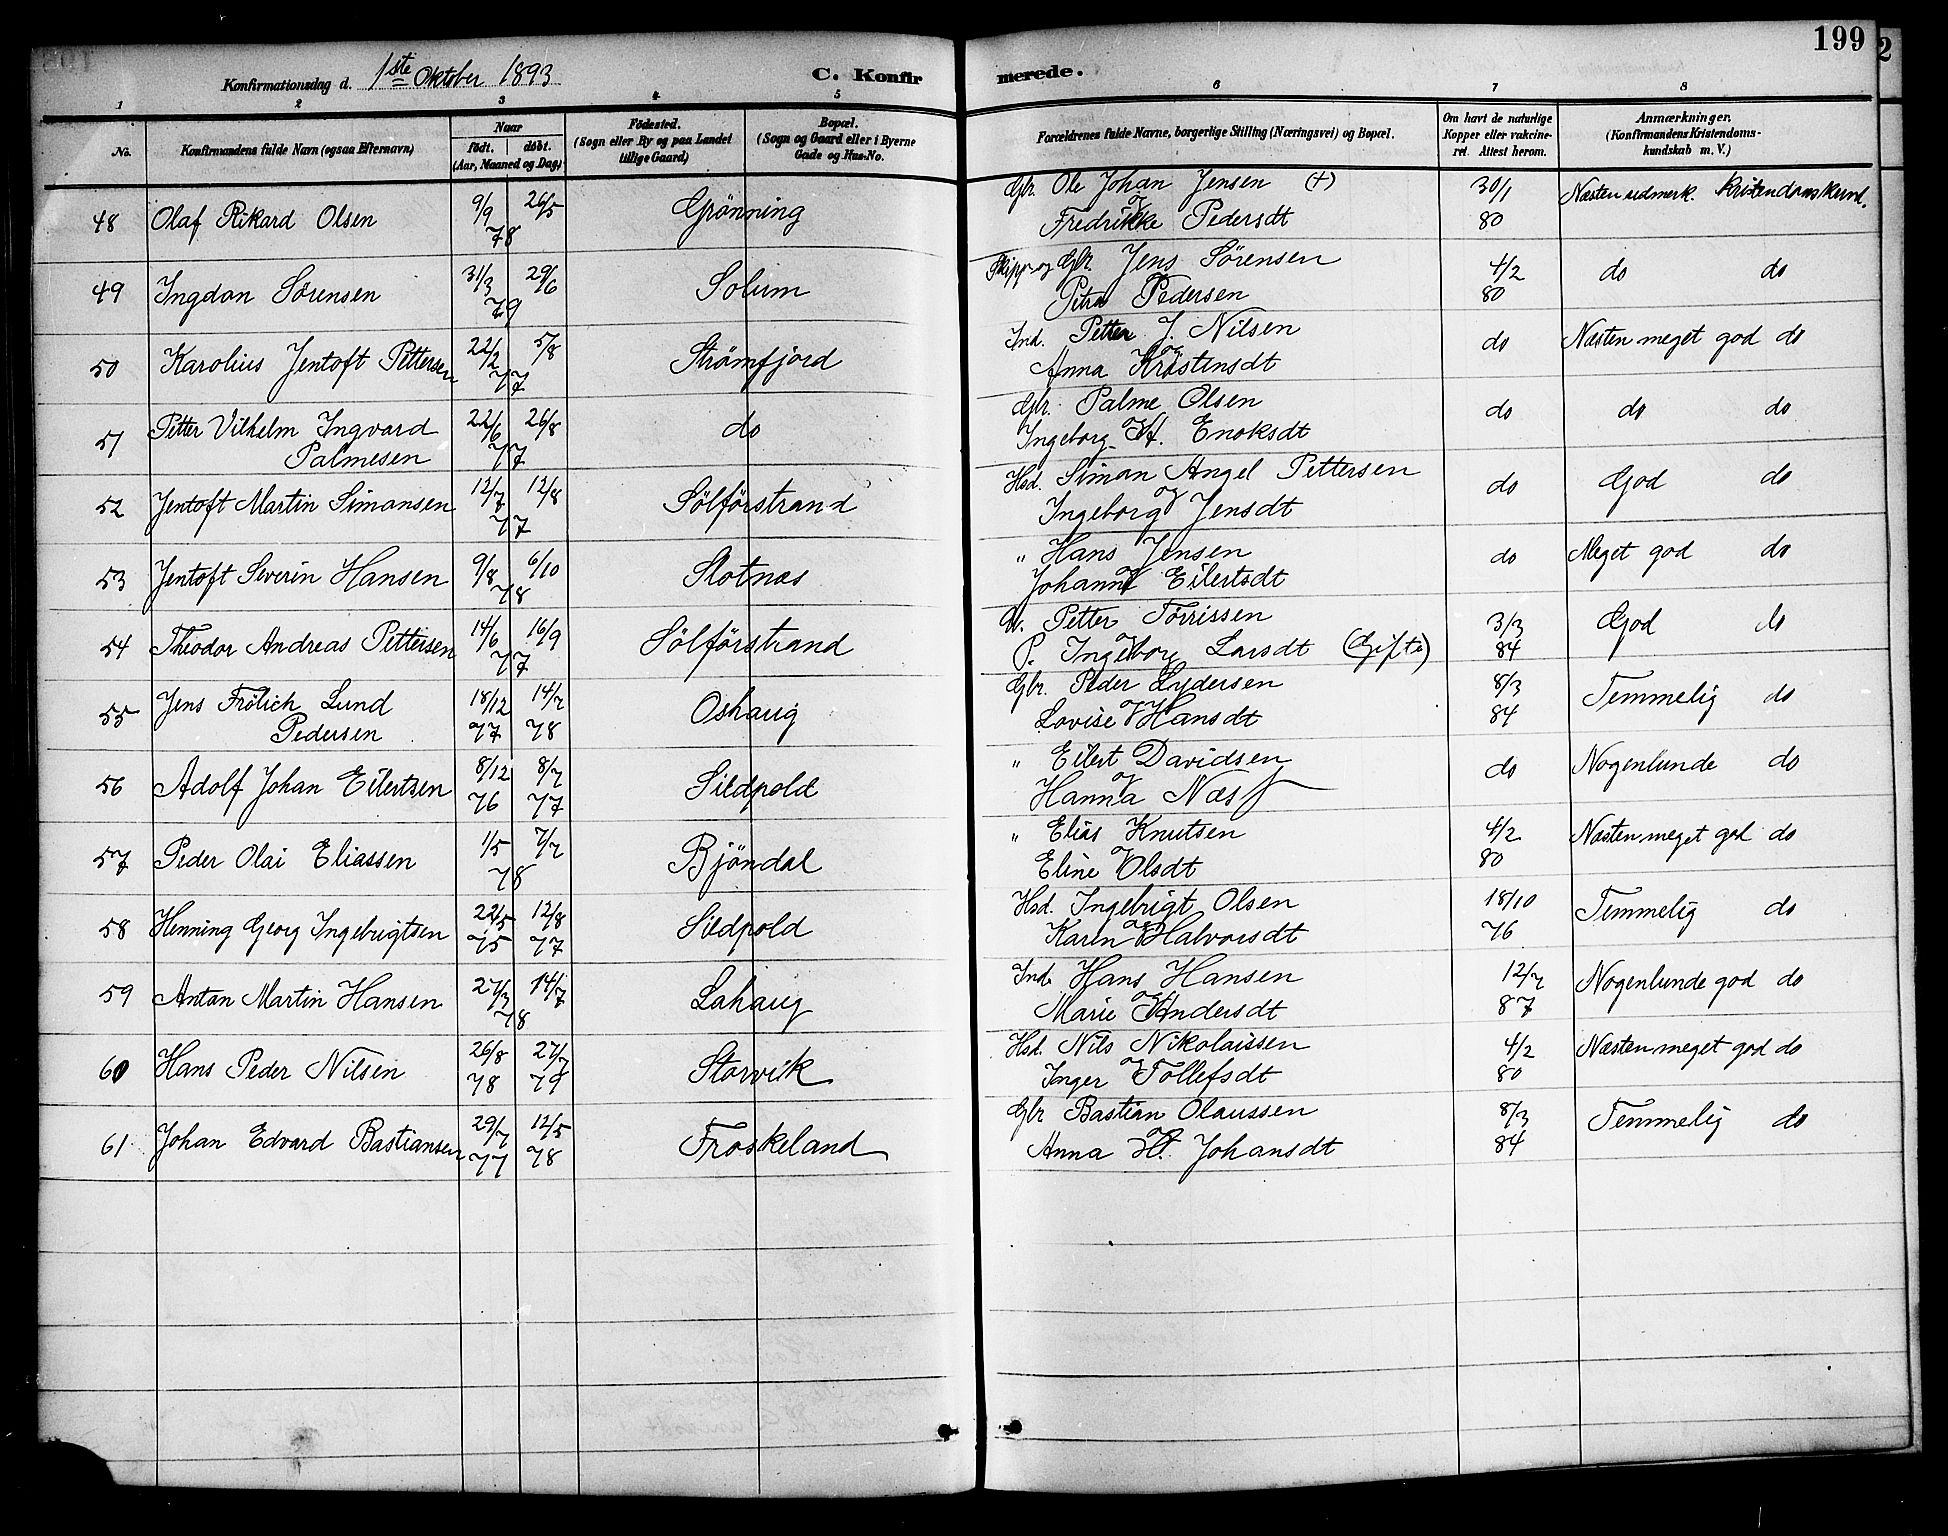 199
2
Konfirmationsdag d. 1ste Oktober 1893
C. Konfirmerede.
1 2 3 4 5 6 7 8
No.
Konfirmandens fulde Navn (ogsaa Efternavn)
Naar
født. døbt.
(Aar, Maaned og Dag)
Fødested.
(Sogn eller By og paa Landet
tillige Gaard)
Bopæl.
(Sogn og Gaard eller i Byerne
Gade og Hus-No.
Forældrenes fulde Navne, borgerlige Stilling (Næringsvei) og Bopæl.
Om havt de naturlige
Kopper eller vakcine-
ret. Attest herom.
Anmærkninger.
(Konfirmandens Kristendoms-
kundskab m. V.)
48 Olaf Rikard Olsen 9/9 26/5 78 Grönning Gbr. Ole Johan Jensen (+) og Fredrikke Pedersdt 30/1 80 Næsten udmerk. Kristendomskund.
49 Ingdan Sørensen 31/3 29/6 79 Solum Skipp og Gbr. Jens Sørensen Petra Pedersen 4/2 80 do do
50 Karolius Jentoft Pettersen 22/2 5/8 77 Strömfjord Ind. Petter J. Nilsen og Anna Kristensdt do Næsten meget god do
51 Petter Vilhelm Ingvard Palmesen 22/6 26/8 77 do Gbr. Palme Olsen og Ingeborg H. Enoksdt do do do
52 Jentoft Martin Simonsen 12/7 12/8 77 Sölförstrand Hsd. Simon Angel Pettersen og Ingeborg Jensdt do God do
53 Jentoft Severin Hansen 9/8 6/10 78 Slotnæs " Hans Jensen og Johanna Eilertsdt do Meget god do
54 Theodor Andreas Pettersen 14/6 16/9 77 Sölförstrand U. Petter Tørrissen og P. Ingeborg Larsdt (Gifte) 3/3 84 God do
55 Jens Frölich Lund Pedersen 18/12 77 14/7 78 Oshaug Gbr. Peder Lydersen og Lovise Hansdt 8/3 84 Temmelig do
56 Adolf Johan Eilertsen 8/12 76 8/7 77 Sildpold " Eilert Davidsen og Hanna Næss do Nogenlunde do
57 Peder Olai Eliassen 1/5 7/7 78 Bjöndal " Elias Knutsen og Eline Olsdt 4/2 80 Næsten meget god do
58 Henning Georg Ingebrigtsen 22/5 75 12/8 77 Sildpold Hsd. Ingebrigt Olsen og Karen Halvorsdt 18/10 76 Temmelig do
59 Anton Martin Hansen 27/3 14/7 78 Lahaug Ind. Hans Hansen og Marie Andersdt 12/7 87 Nogenlunde god do
60 Hans Peder Nilsen 26/8 78 27/7 79 Storvik Hsd. Nils Nikolaissen og Inger Tollefsdt 4/2 80 Næsten meget god do
61 Johan Edvard Bastiansen 29/7 77 12/5 78 Froskeland Gbr Bastian Olaussen og Anna H. Johansdt 8/3 84 Temmelig do